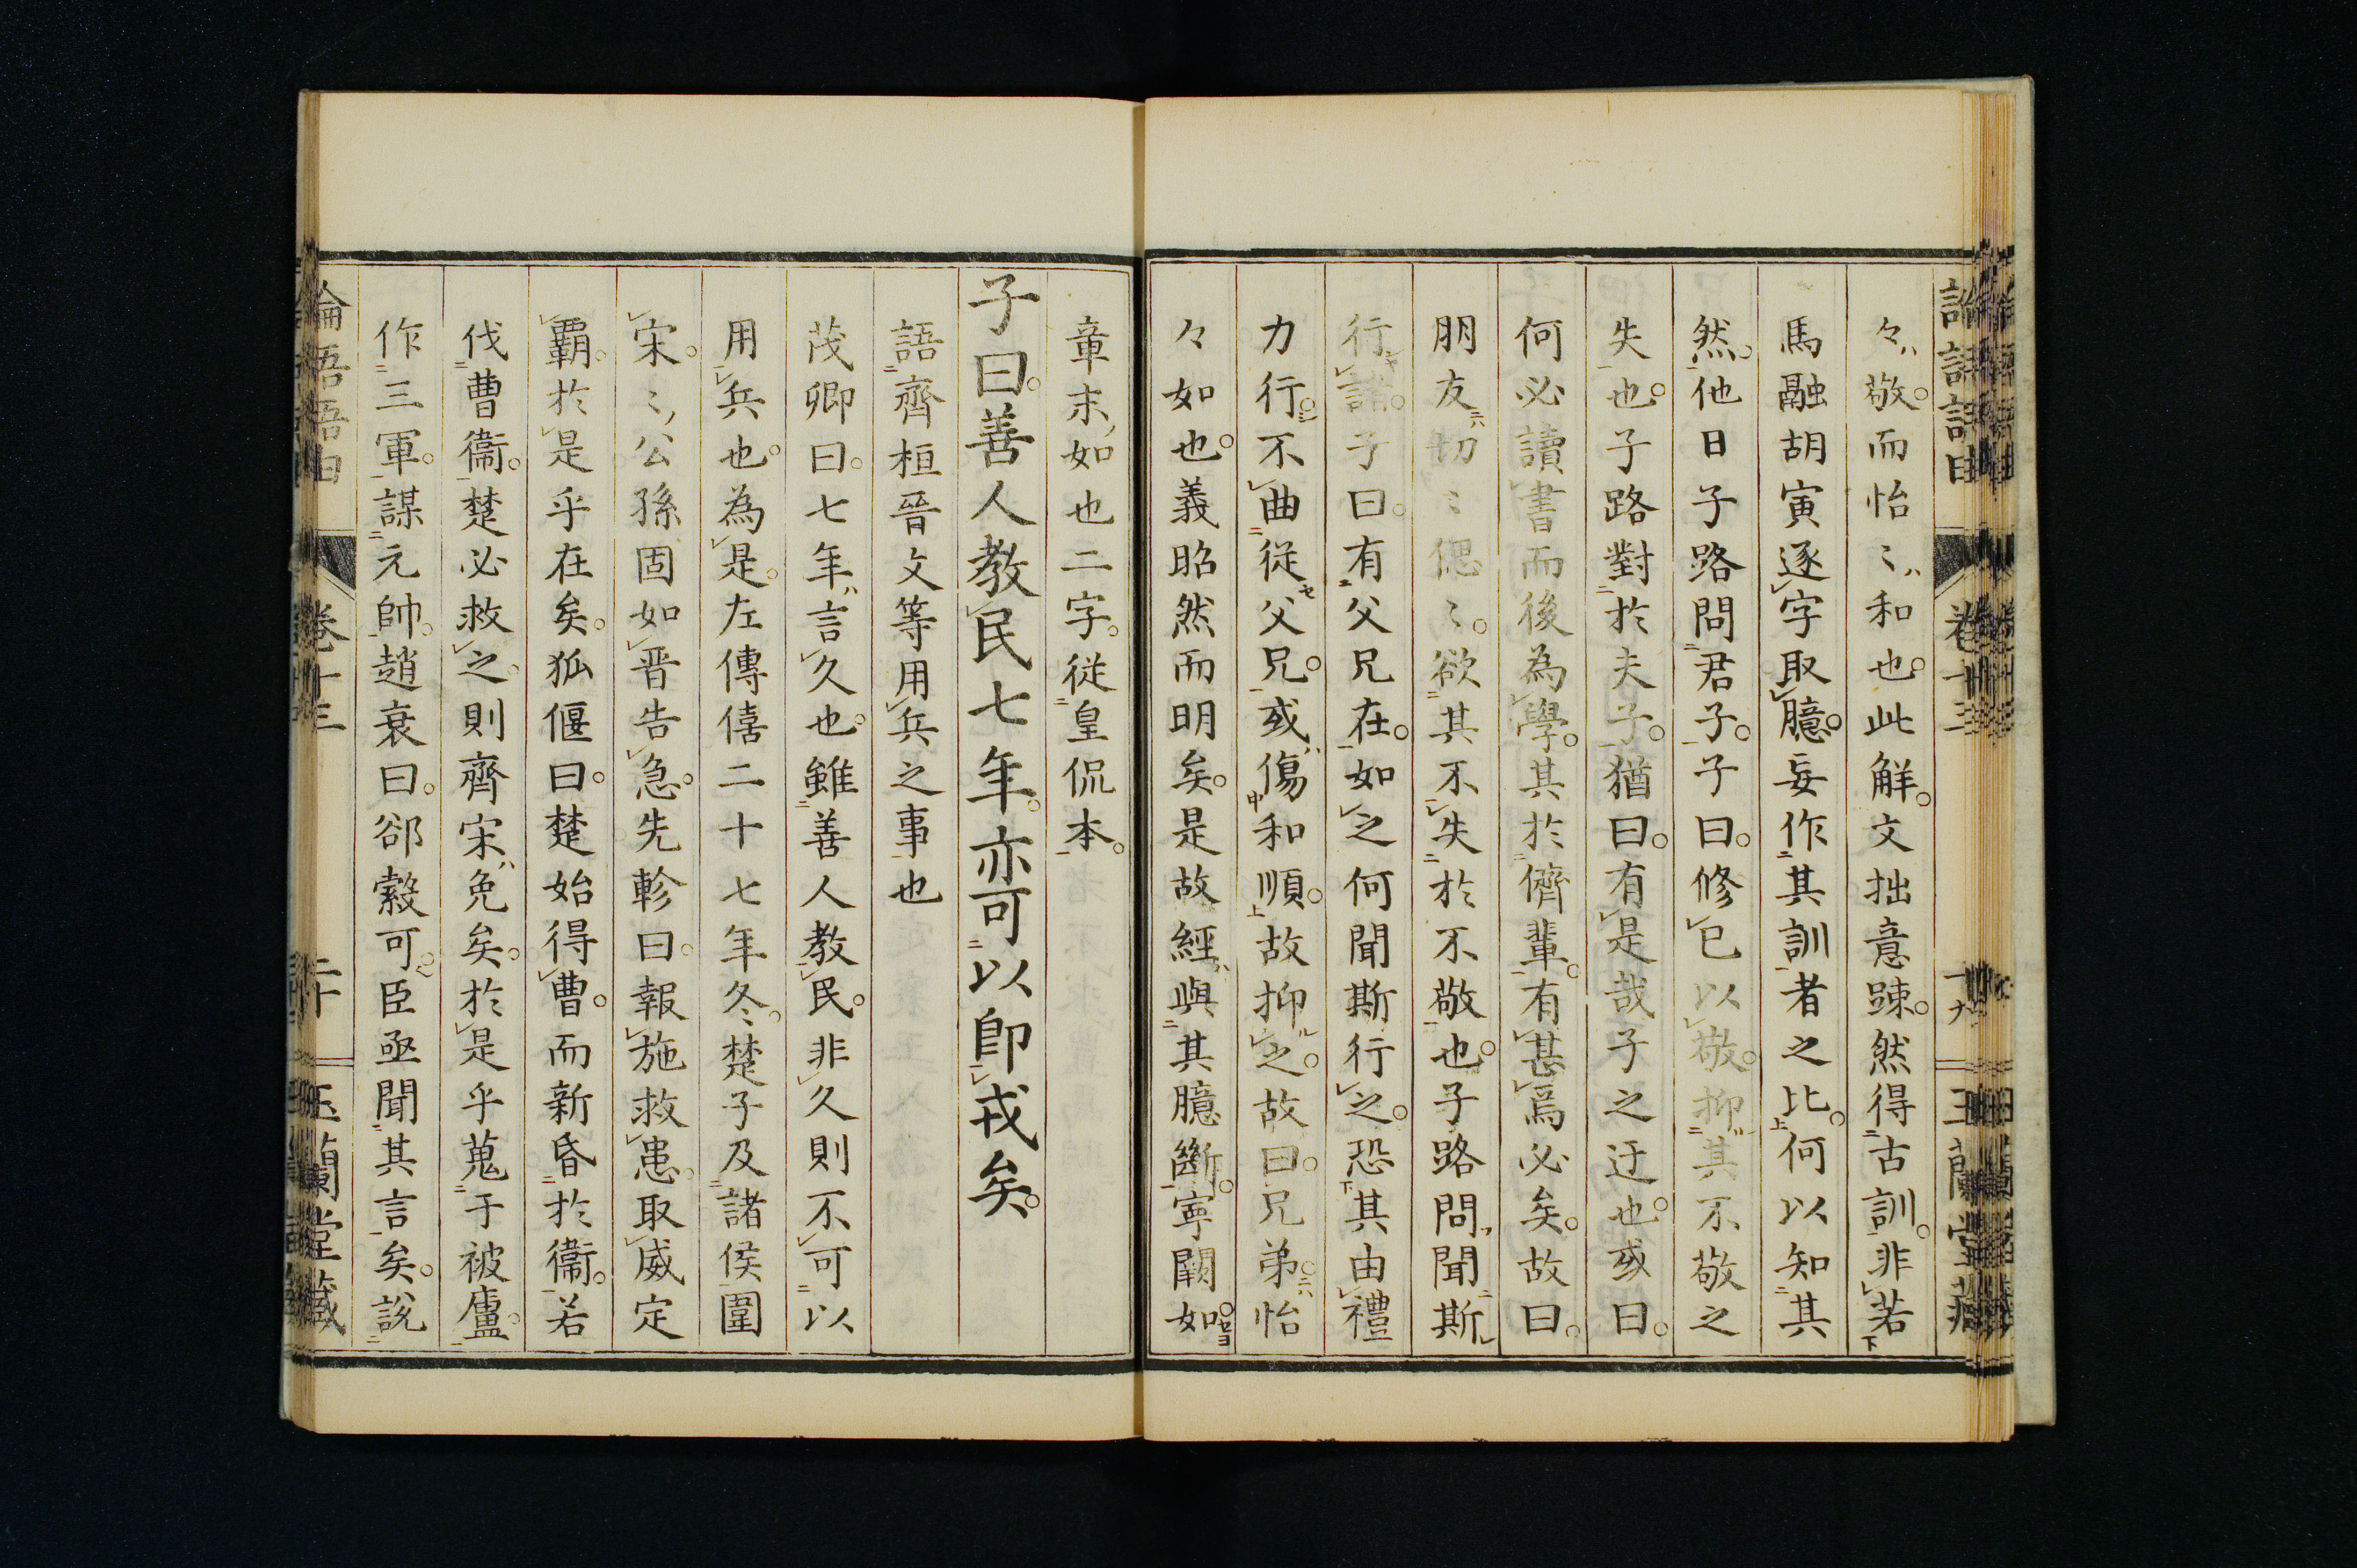 々敬。而怡〻和也。此解。文拙意踈。然得古訓。非若
馬融胡寅逐字取臆。妄作其訓者之比。何以知其
然。他日子路問君子。子曰。修已以敬。抑其不敬之
失也。子路對於夫子。猶曰。有是哉子之迂也。或曰。
何必讀書而後為學。其於儕輩。有甚焉必矣。故曰。
朋友切〻偲〻。欲其不失於不敬也。子路問聞斯
行諸。子曰。有父兄在。如之何聞斯行之。恐其由禮
力行。不曲從父兄。或傷和順。故抑之。故曰。兄弟怡
々如也。義昭然而明矣。是故經與其臆斷。寧闕如。
章末如也二字。從皇侃本。
子曰。善人教民七年。亦可以即戎矣。
語齊桓晉文等用兵之事也
茂卿曰。七年言久也。雖善人教民。非久則不可以
用兵也。為是。左傳僖二十七年冬。楚子及諸侯圍
宋。〻公孫固如晋告急。先軫曰。報施救患。取威定
覇。於是乎在矣。狐偃曰。楚始得曹。而新昏於衞。若
伐曹衞。楚必救之。則齊宋免矣。於是乎蒐于被廬。
作三軍。謀元帥。趙衰曰。郤縠可。臣亟聞其言矣。說
論語語由
卷十三
二十
玉蘭堂藏